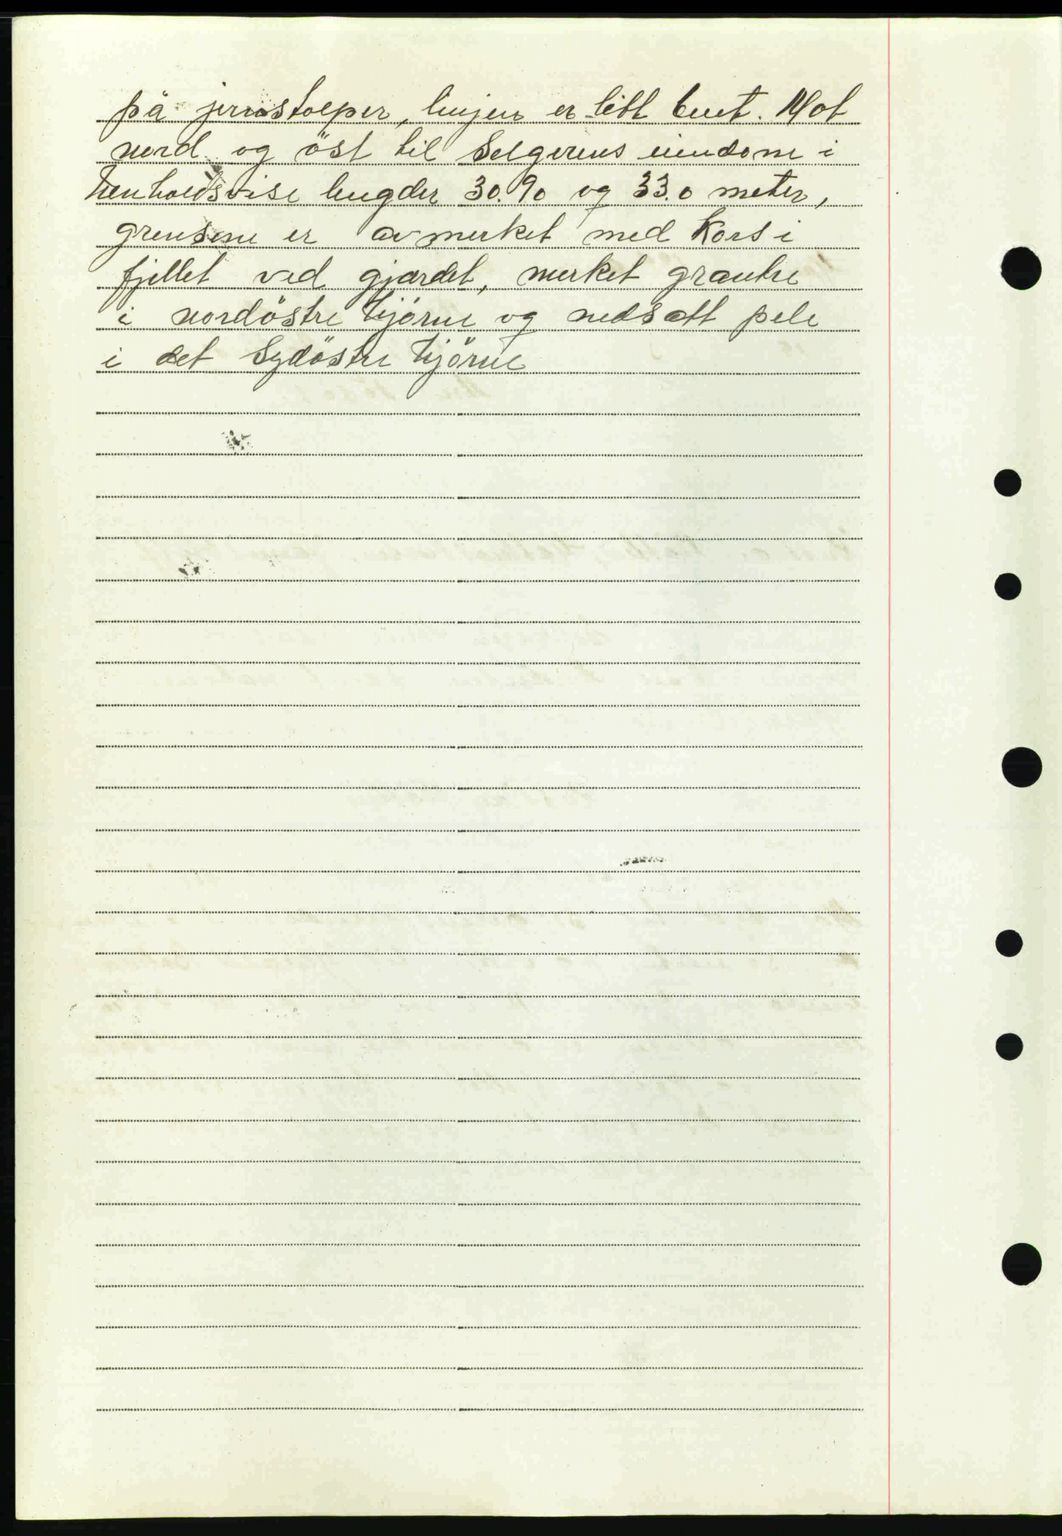 på jernstolper, linjen er litt buet. Mot
nord og öst til Selgerens eiendom i
henholdsvise lengder 30.90 og 33.0 meter,
grensene er avmerket med Kors i
fjellet ved gjærdet, merket grantre
i nordöstre hjörne og nedsatt pele
i det Sydöstre hjörne